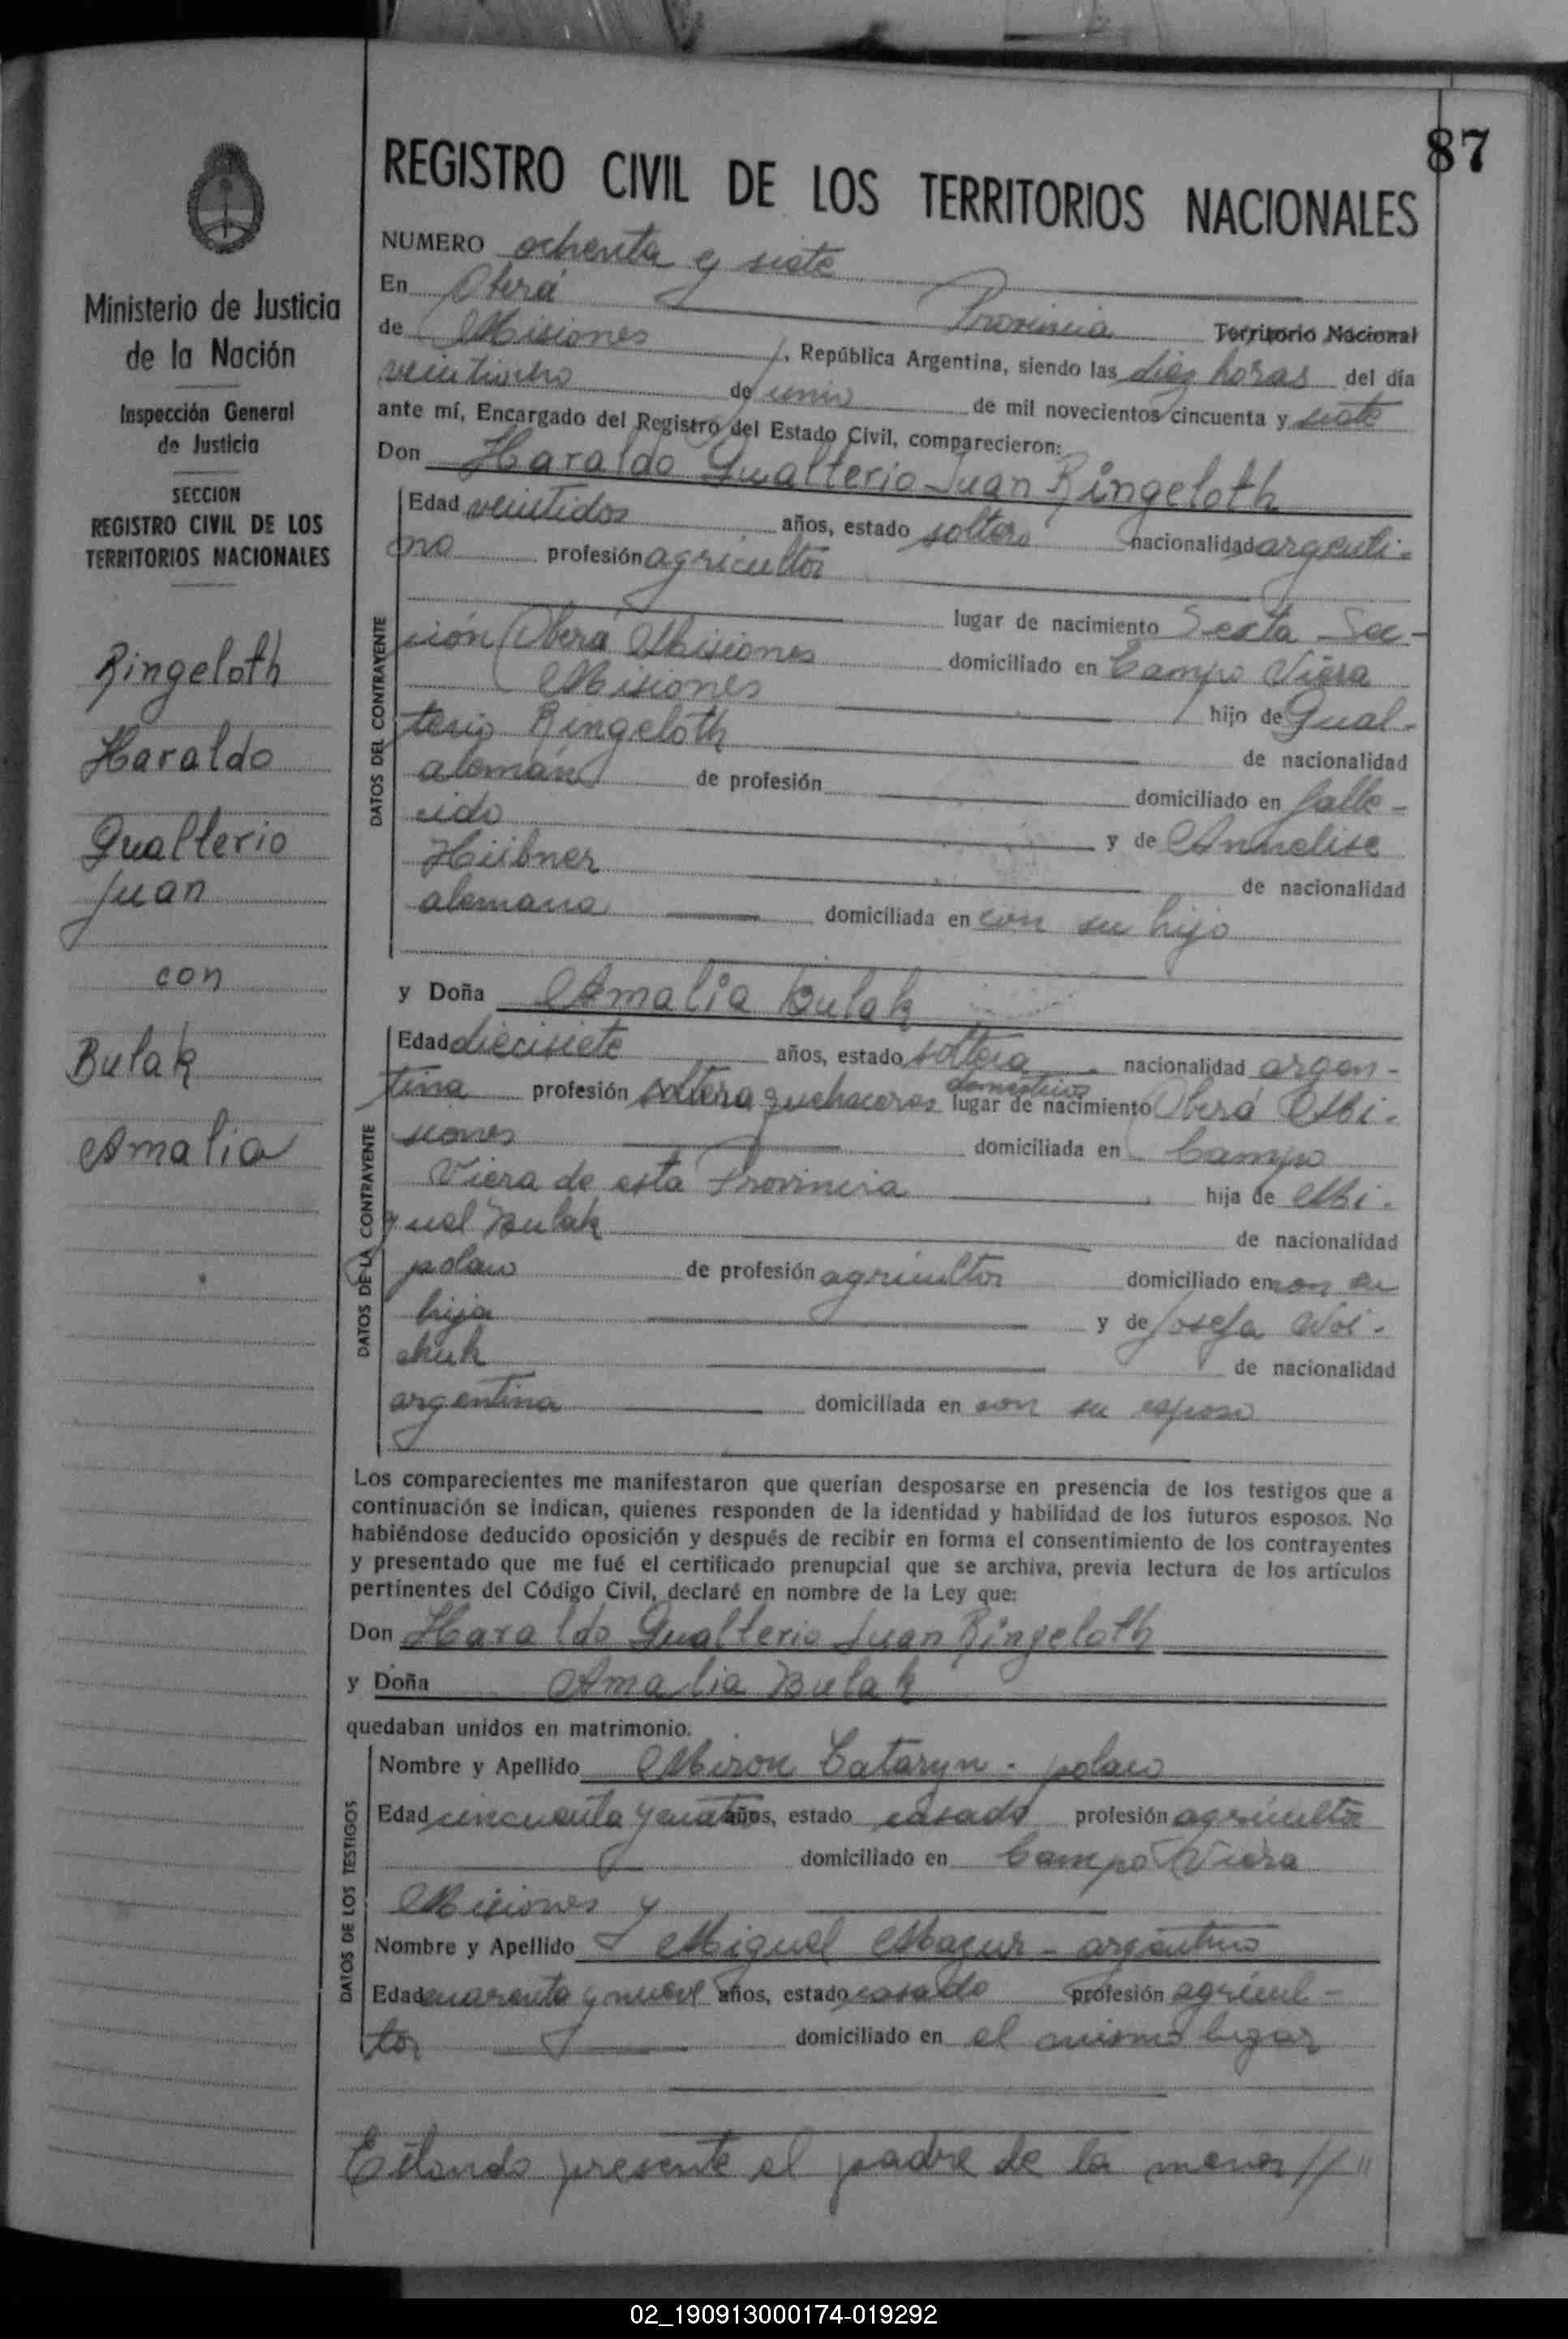 87
REGISTRO CIVIL DE LOS TERRITORIOS NACIONALES
NUMERO ochenta y siete
En Oberá Provincia Territorio Nacional
de Misiones, República Argentina, siendo las diez horas del día
veintiocho de junio de mil novecientos cincuenta y siete
ante mí, Encargado del Registro del Estado Civil, comparecieron:
Don Haraldo Gualterio Juan Ringeloth
Edad veintidos años, estado soltero nacionalidad argenti-
no profesión agricultor
lugar de nacimiento Sexta Sec-
ción Oberá Misiones domiciliado en Campo Viera
Misiones hijo de Gual-
terio Ringeloth de nacionalidad
alemán de profesión domiciliado en falle-
cido y de Annelise
Hübner de nacionalidad
alemana domiciliada en con su hijo
DATOS DEL CONTRAYENTE
y Doña Amalia Bulak
Edad diecisiete años, estado soltera nacionalidad argen-
tina profesión soltera quehaceres domésticos lugar de nacimiento Oberá Mi-
siones domiciliada en Campo
Viera de esta Provincia hija de Mi-
guel Bulak de nacionalidad
polaco de profesión agricultor domiciliado en con su
hija y de Josefa Woi-
chuk de nacionalidad
argentina domiciliada en con su esposo
DATOS DE LA CONTRAYENTE
Los comparecientes me manifestaron que querían desposarse en presencia de los testigos que a
continuación se indican, quienes responden de la identidad y habilidad de los futuros esposos. No
habiéndose deducido oposición y después de recibir en forma el consentimiento de los contrayentes
y presentado que me fué el certificado prenupcial que se archiva, previa lectura de los artículos
pertinentes del Código Civil, declaré en nombre de la Ley que:
Don Haraldo Gualterio Juan Ringeloth
y Doña Amalia Bulak
quedaban unidos en matrimonio.
Nombre y Apellido Miron Cataryn - polaco
Edad cincuenta y cuatro años, estado casado profesión agricultor
domiciliado en Campo Viera
Misiones y
Nombre y Apellido Miguel Mazur - argentino
Edad cuarenta y nueve años, estado casado profesión agricul-
tor domiciliado en el mismo lugar
DATOS DE LOS TESTIGOS
Estando presente el padre de la menor //"
Ministerio de Justicia
de la Nación
Inspección General
de Justicia
SECCION
REGISTRO CIVIL DE LOS
TERRITORIOS NACIONALES
Ringeloth
Haraldo
Gualterio
Juan
con
Bulak
Amalia
02_190913000174-019292